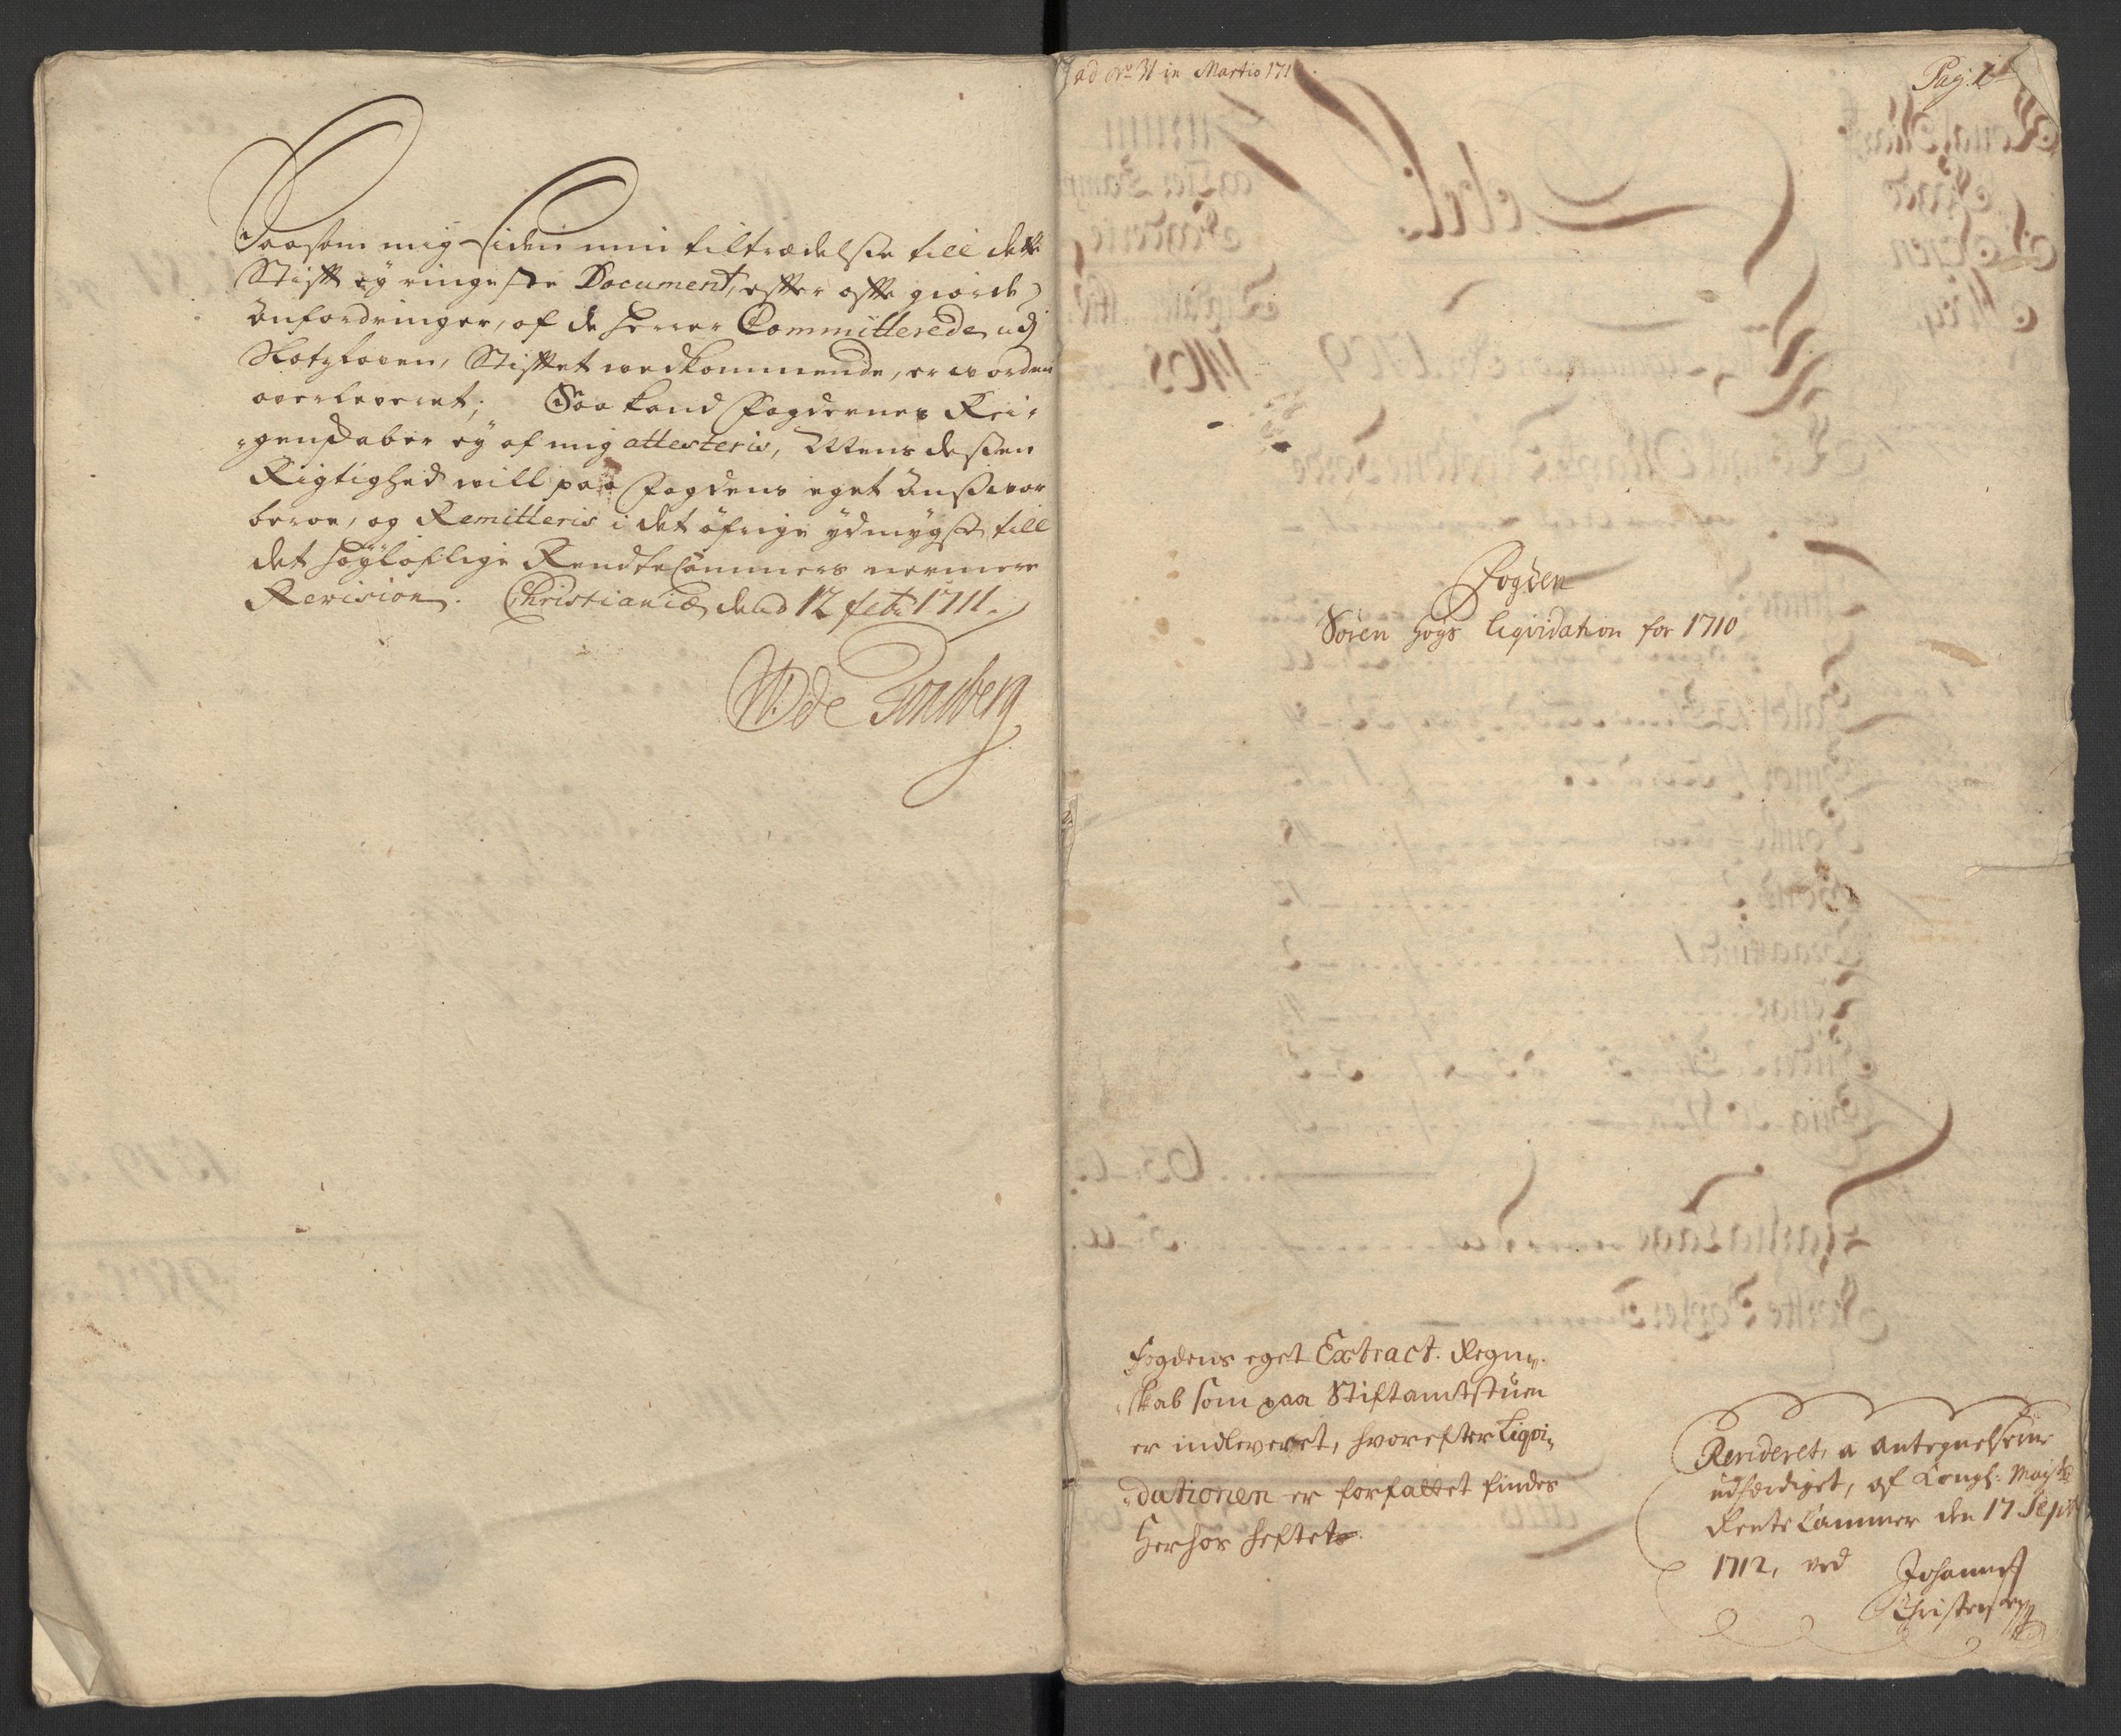 Saasom mig siden min tiltrædelse till dette
Stift ey ringeste Document, efter ofte giorde
Anfordringer, af de Herrer Committerede udj
Slotzloven, Stiftet vedkommende, er worden
overleveret; Saa kand Fogdernes Rei-
-genskaber ey af mig attesteris, Mens dessen
Rigtighed will paa Fogdens eget Ansvar
beroe, og Remitteris i det öfrige ydmygst till
det höyloflige Rendte Cammers nermere
Revision. Christianiæ den 12 feb: 1711.
W: de Tonsberg
ad No 31 in Martio 171
Pag: 1
Fogden
Sören Höys liqvidation for 1710
Fogdens eget Extract Regn-
skab som paa Stiftamtstuen
er indleveret, hvorefter Liqvi-
-dationen er forfattet findes
Herhos heftet.
Revideret, a antegnelserne
udferdiget, af Kongl: Mayts
Rente Cammer den 17 Sept
1712, ved Johannes
Christensen